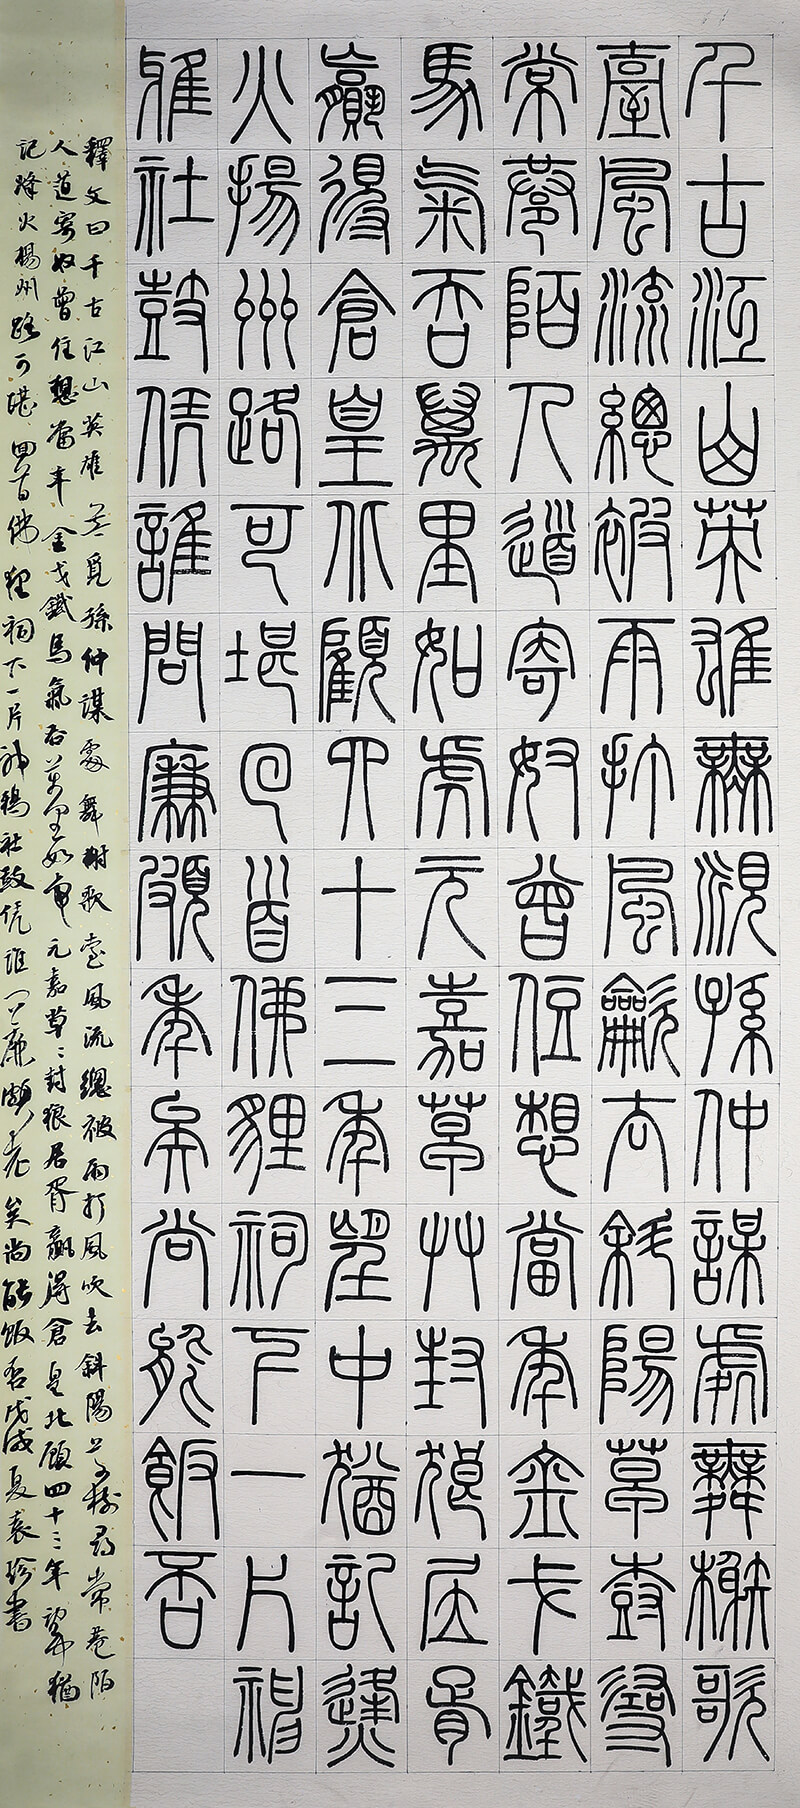 千古江山英雄無覓孫仲謀處舞榭歌
臺風流總被雨打風龡去斜陽草樹尋
常巷陌人道寄奴曾住想當年金戈鐵
馬氣吞萬里如虎元嘉草艸封狼居胥
贏得倉皇北顧四十三年望中猶記㷭
火揚州路可堪回首佛貍祠下一片神
鴉社鼓憑誰問廉頗老矣尚能飯否
釋文曰千古江山英雄無覓孫仲謀處舞榭歌臺風流總被雨打風吹去斜陽草樹尋常巷陌
人道寄奴曾住想當年金戈鐵馬氣吞萬里如虎元嘉草〻封狼居胥贏得倉皇北顧四十三年望中猶
記烽火揚州路可堪回首佛狸祠下一片神鴉社鼓憑誰問廉頗老矣尚能飯否戊戌夏袁珍書